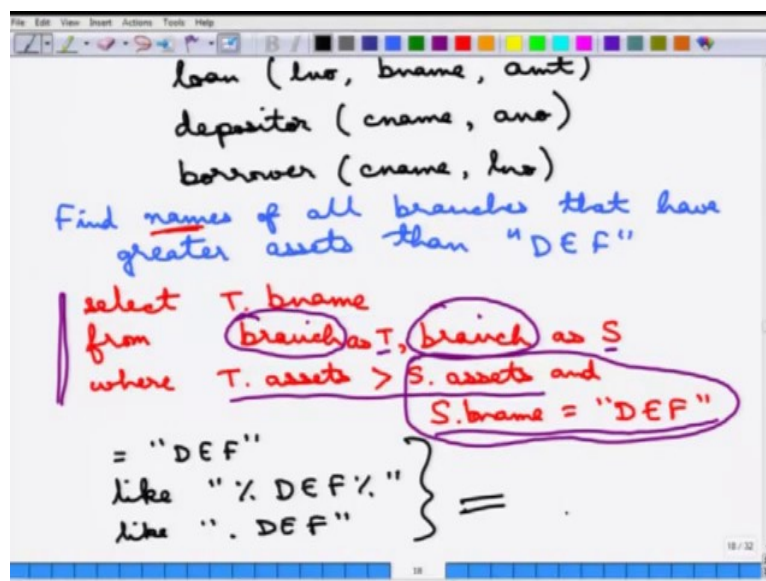 File Edit View Insert Actions Tools Help
B I
loan (lno, bname, amt)
depositor (cname, ano)
borrower (cname, lno)
Find names of all branches that have
greater assets than "DEF"
select T. bname
from branch as T, branch as S
where T. assets > S. assets and
S. bname = "DEF"
= "DEF"
like "% DEF%"
like ". DEF"
=
18/32
18